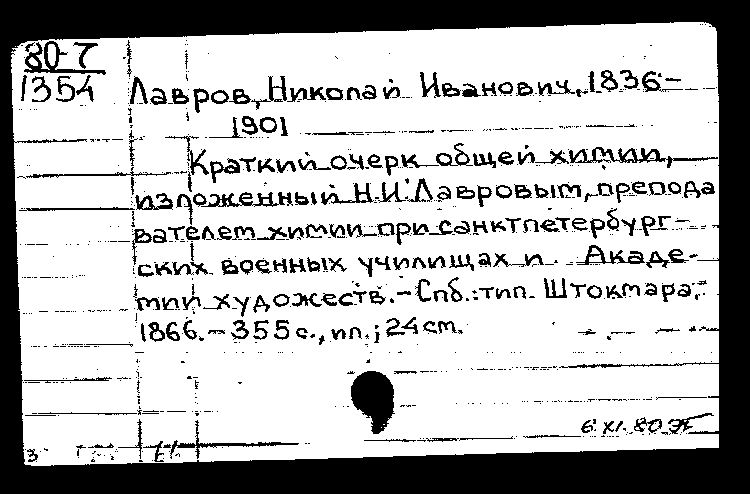 80-7
1354
Лавров, Николай Иванович, 1836-
1901
Краткий очерк общей химии,
изложенный Н.И. Лавровым, препода
вателем химии при санктпетербург-
ских военных училищах и Акаде-
мии художеств. - Спб.: тип. Штокмара,
1866. - 355 с., ил.; 24 см.
6.XI.80